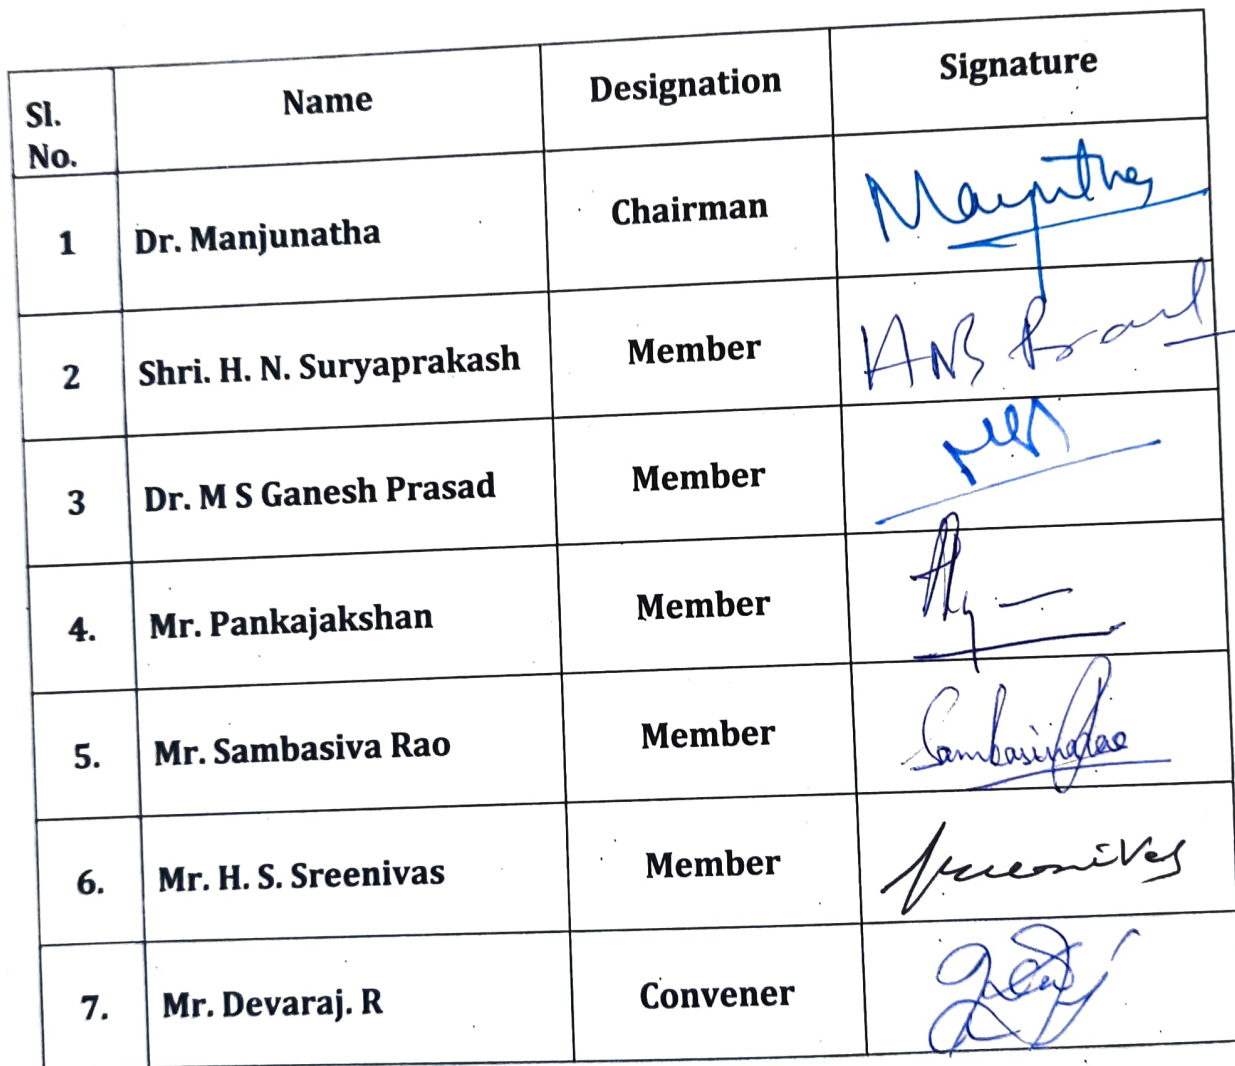 Sl. No. Name Designation Signature
1 Dr. Manjunatha Chairman Manjuntha
2 Shri. H. N. Suryaprakash Member
3 Dr. M S Ganesh Prasad Member
4. Mr. Pankajakshan Member
5. Mr. Sambasiva Rao Member Sambasiva Rao
6. Mr. H. S. Sreenivas Member Sreenivas
7. Mr. Devaraj. R Convener